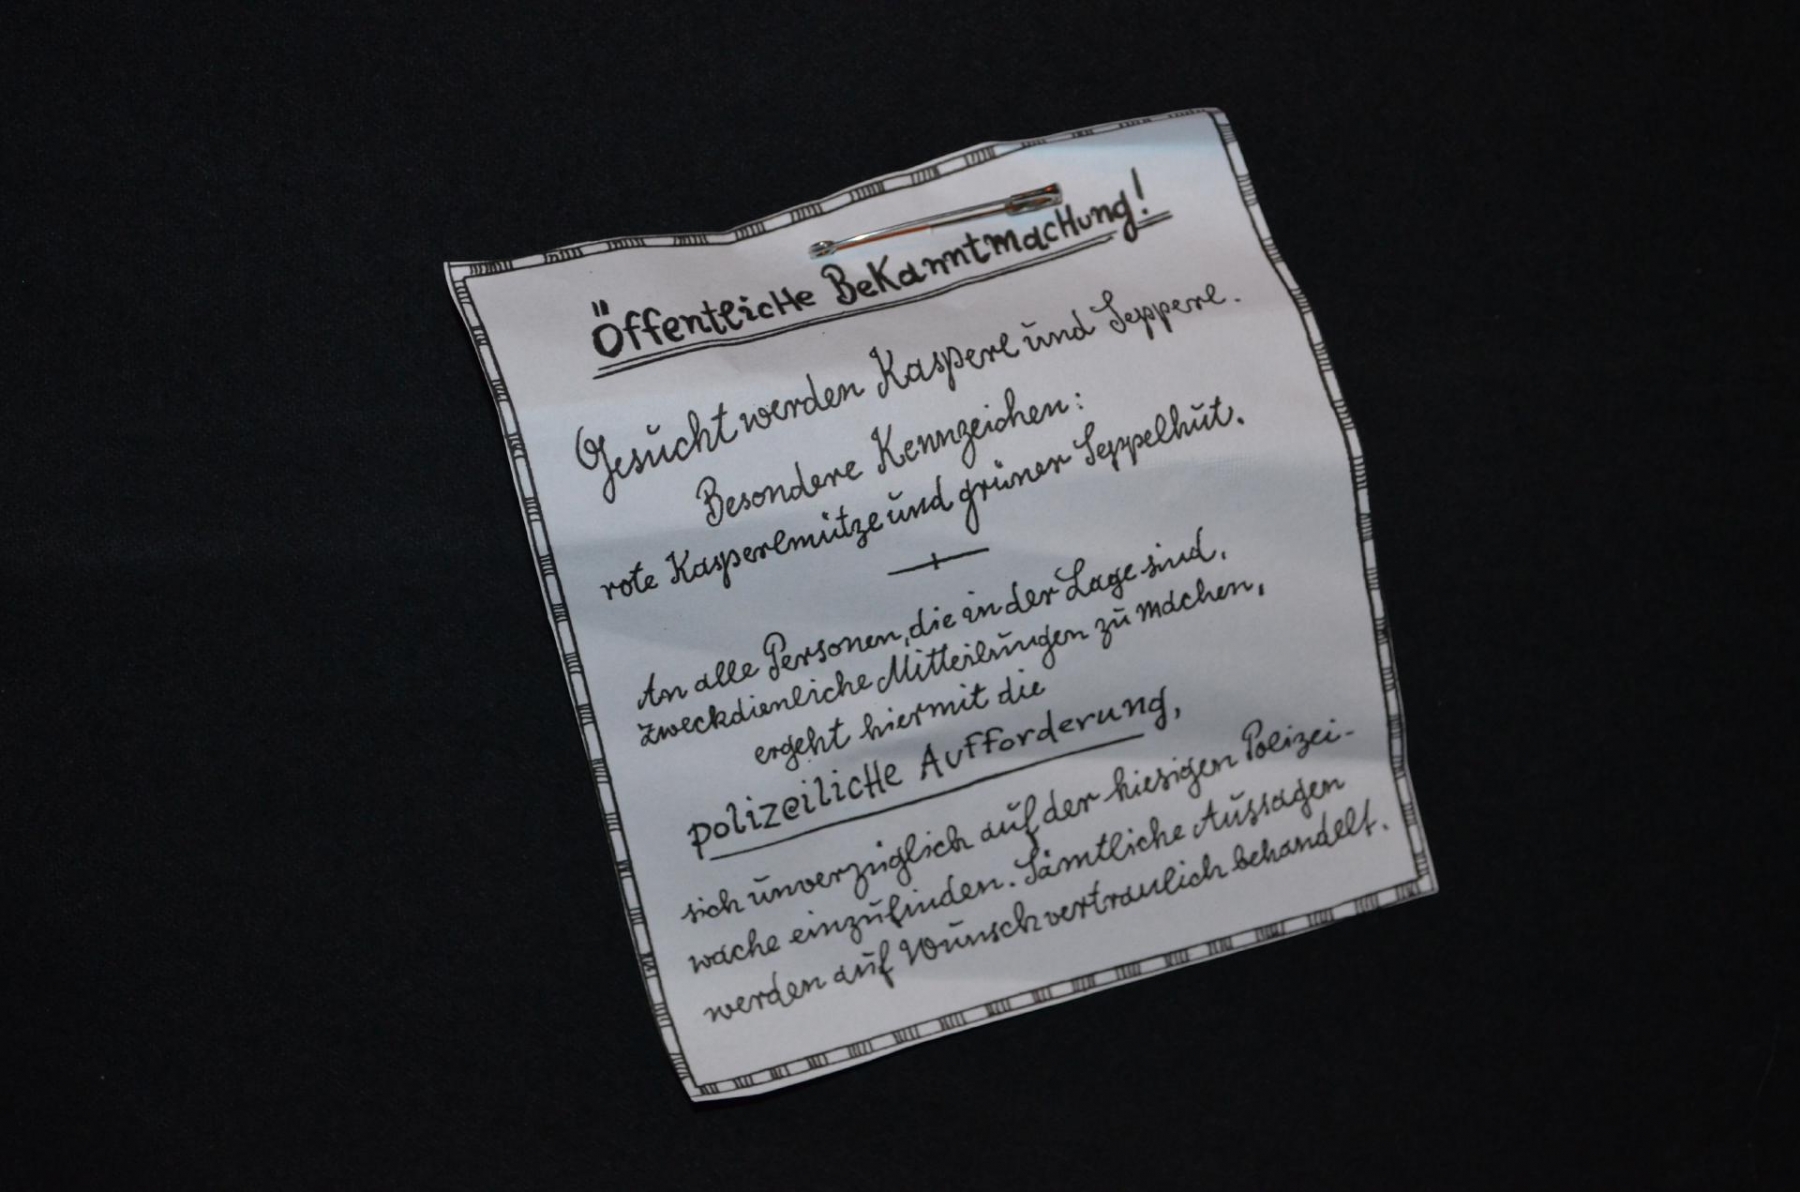 Öffentliche Bekanntmachung!
Gesucht werden Kasperl und Sepperl.
Besondere Kennzeichen:
rote Kasperlmütze und grüner Seppelhut.
An alle Personen, die in der Lage sind,
zweckdienliche Mitteilungen zu machen,
ergeht hiermit die
polizeiliche Aufforderung,
sich unverzüglich auf der hiesigen Polizei-
wache einzufinden. Sämtliche Aussagen
werden auf Wunsch vertraulich behandelt.